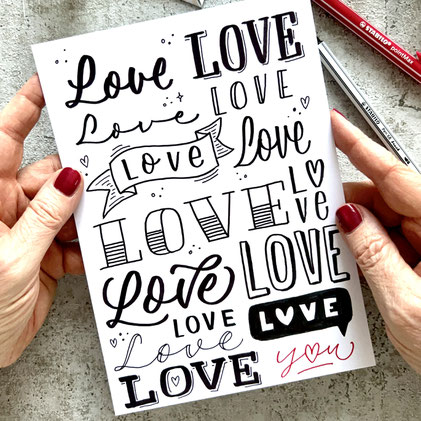 Love LOVE
Love LOVE
LOVE Love
LOVE LOVE
Love LOVE
LOVE LOVE
Love you
LOVE
STABILO pointMax
STABILO